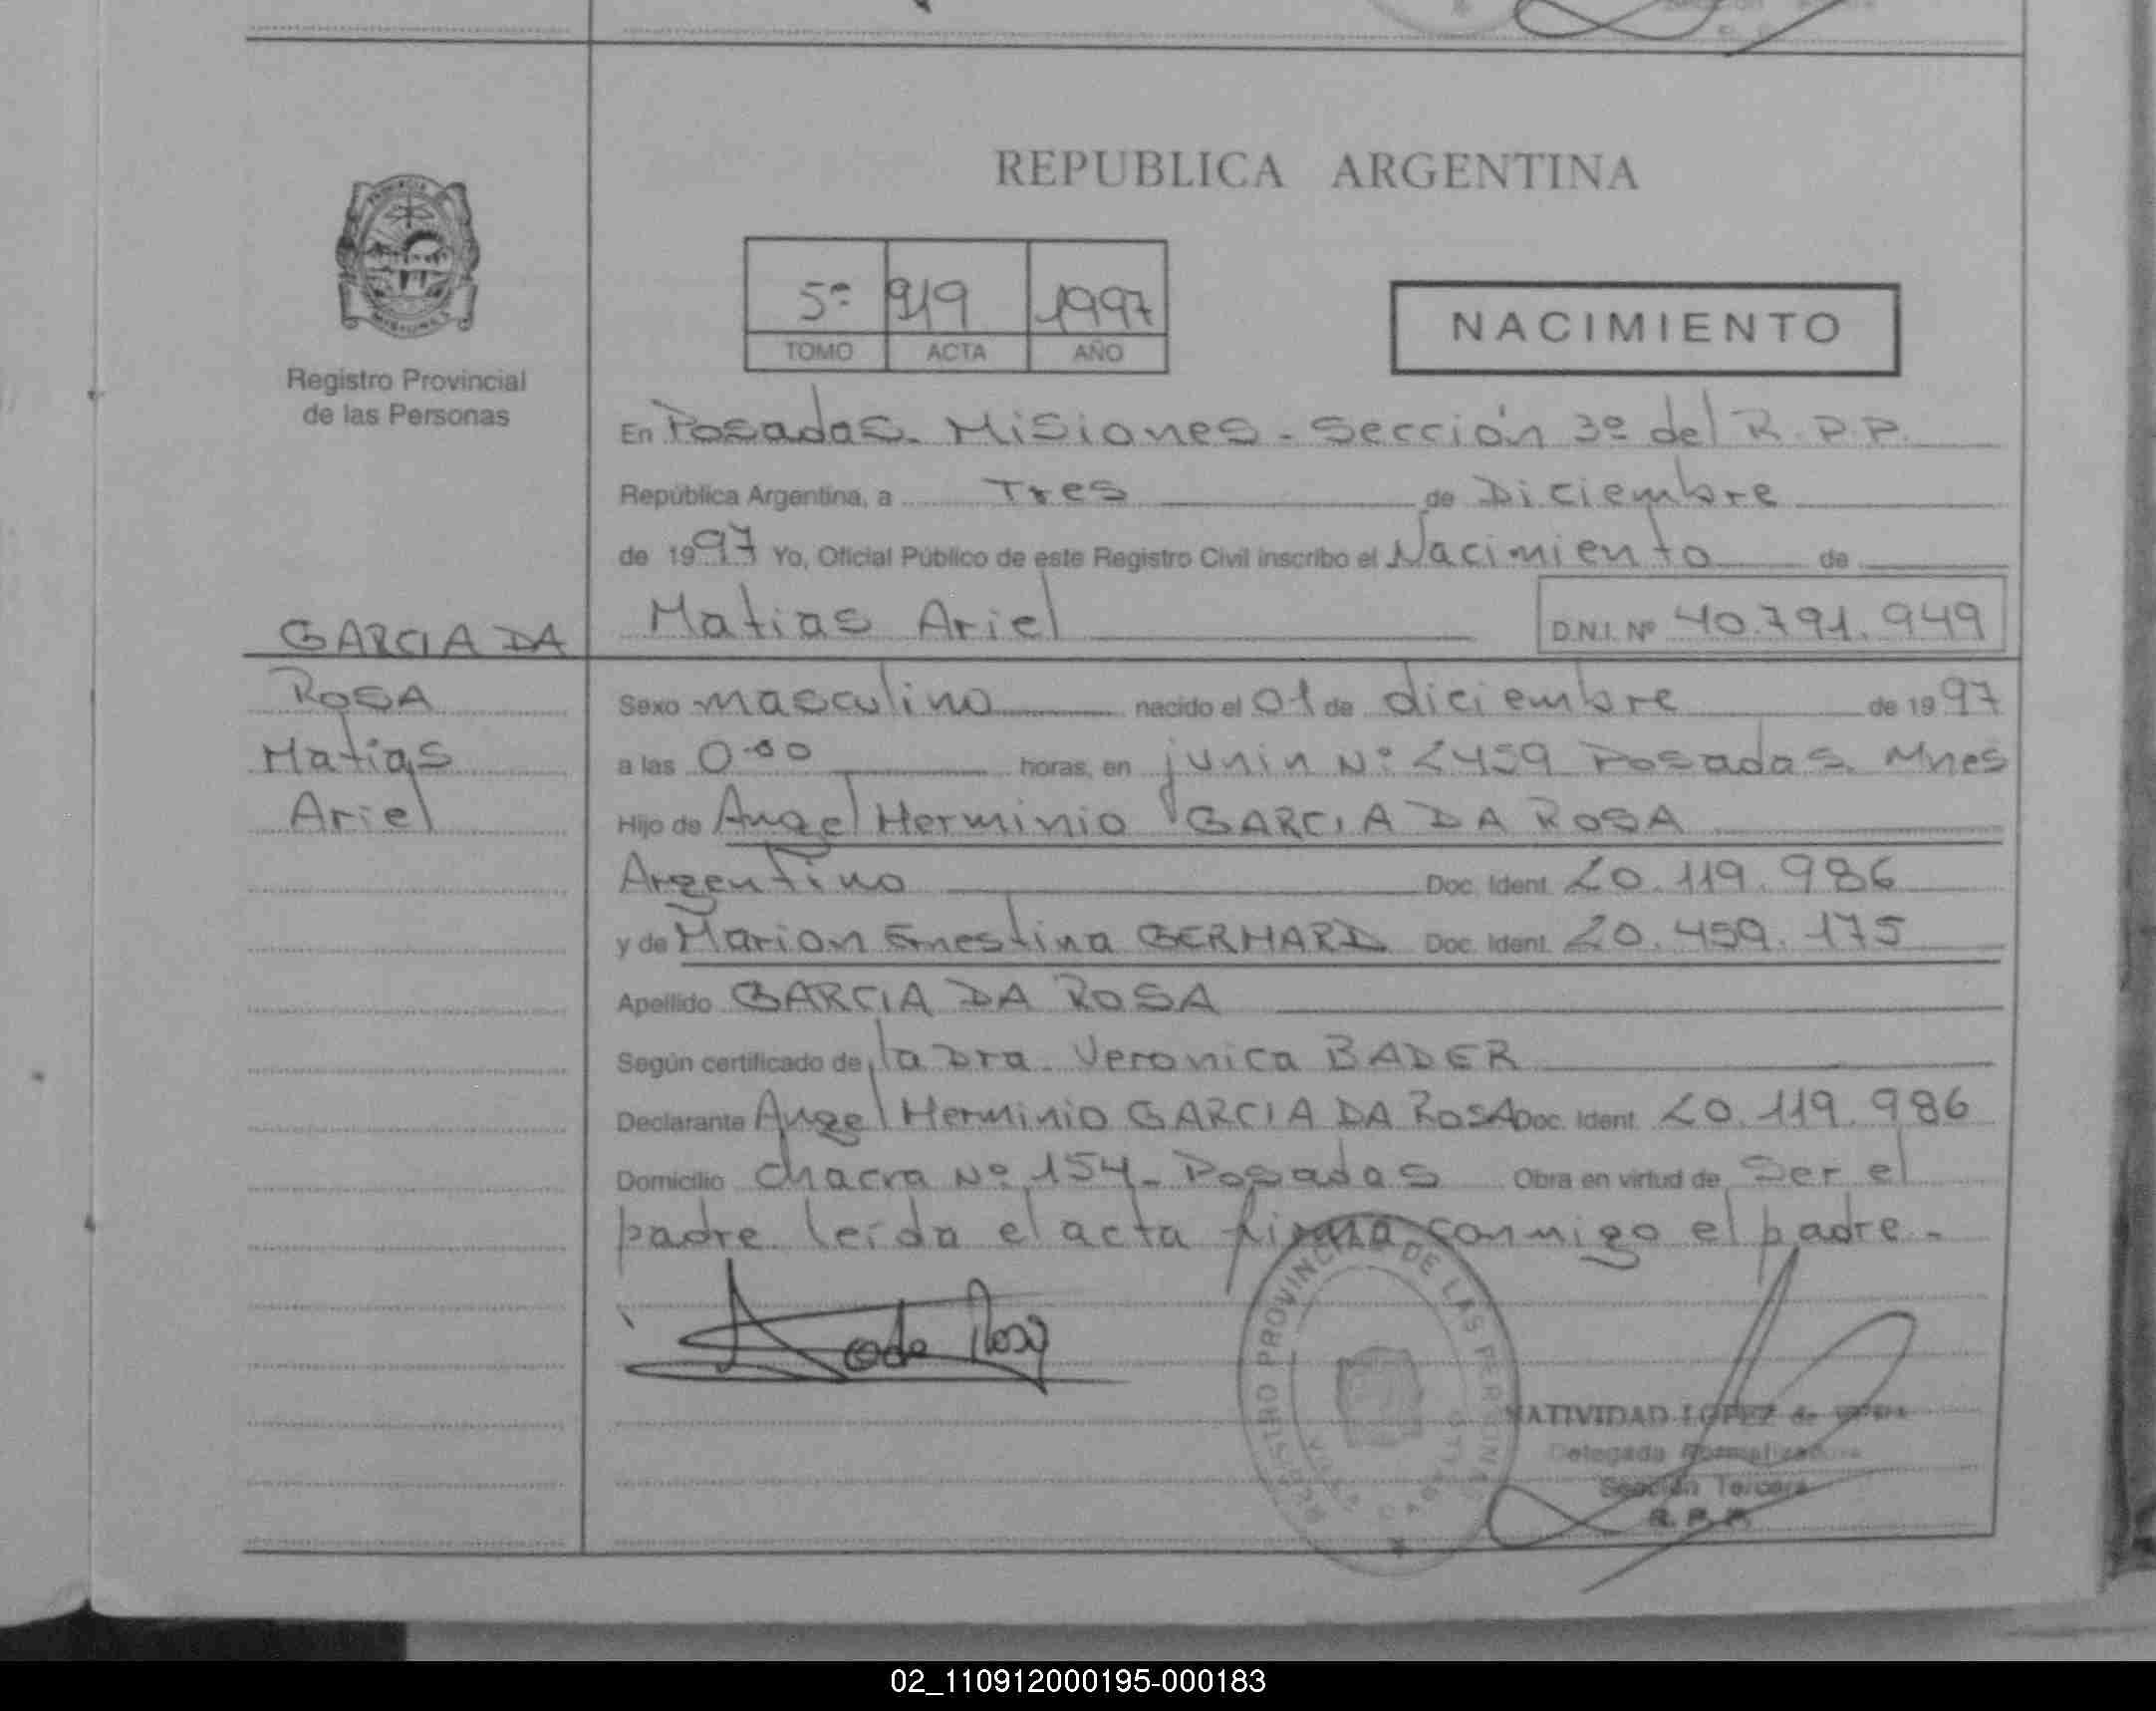 REPUBLICA ARGENTINA
5º 919 1997
TOMO ACTA AÑO
NACIMIENTO
Registro Provincial
de las Personas
En Posadas. Misiones - Sección 3º del R.P.P.
República Argentina, a Tres de Diciembre
de 1997 Yo, Oficial Público de este Registro Civil inscribo el Nacimiento de
Matias Ariel D.N.I. Nº 40.791.949
GARCIA DA
ROSA
Matias
Ariel
Sexo masculino nacido el 01 de diciembre de 1997
a las 0.00 horas, en junin Nº 2459 Posadas. Mnes
Hijo de Angel Herminio GARCIA DA ROSA
Argentino Doc. Ident. 20.119.986
y de Marion Ernestina GERHARD Doc. Ident. 20.459.175
Apellido GARCIA DA ROSA
Según certificado de la Dra. Veronica BADER
Declarante Angel Herminio GARCIA DA ROSA Doc. Ident. 20.119.986
Domicilio Chacra Nº 154 - Posadas Obra en virtud de Ser el
padre. leída el acta firma conmigo el padre. -
REGISTRO PROVINCIAL DE LAS PERSONAS
NATIVIDAD LOPEZ de
Delegada Normalizadora
Sección Tercera
R.P.P.
02_110912000195-000183